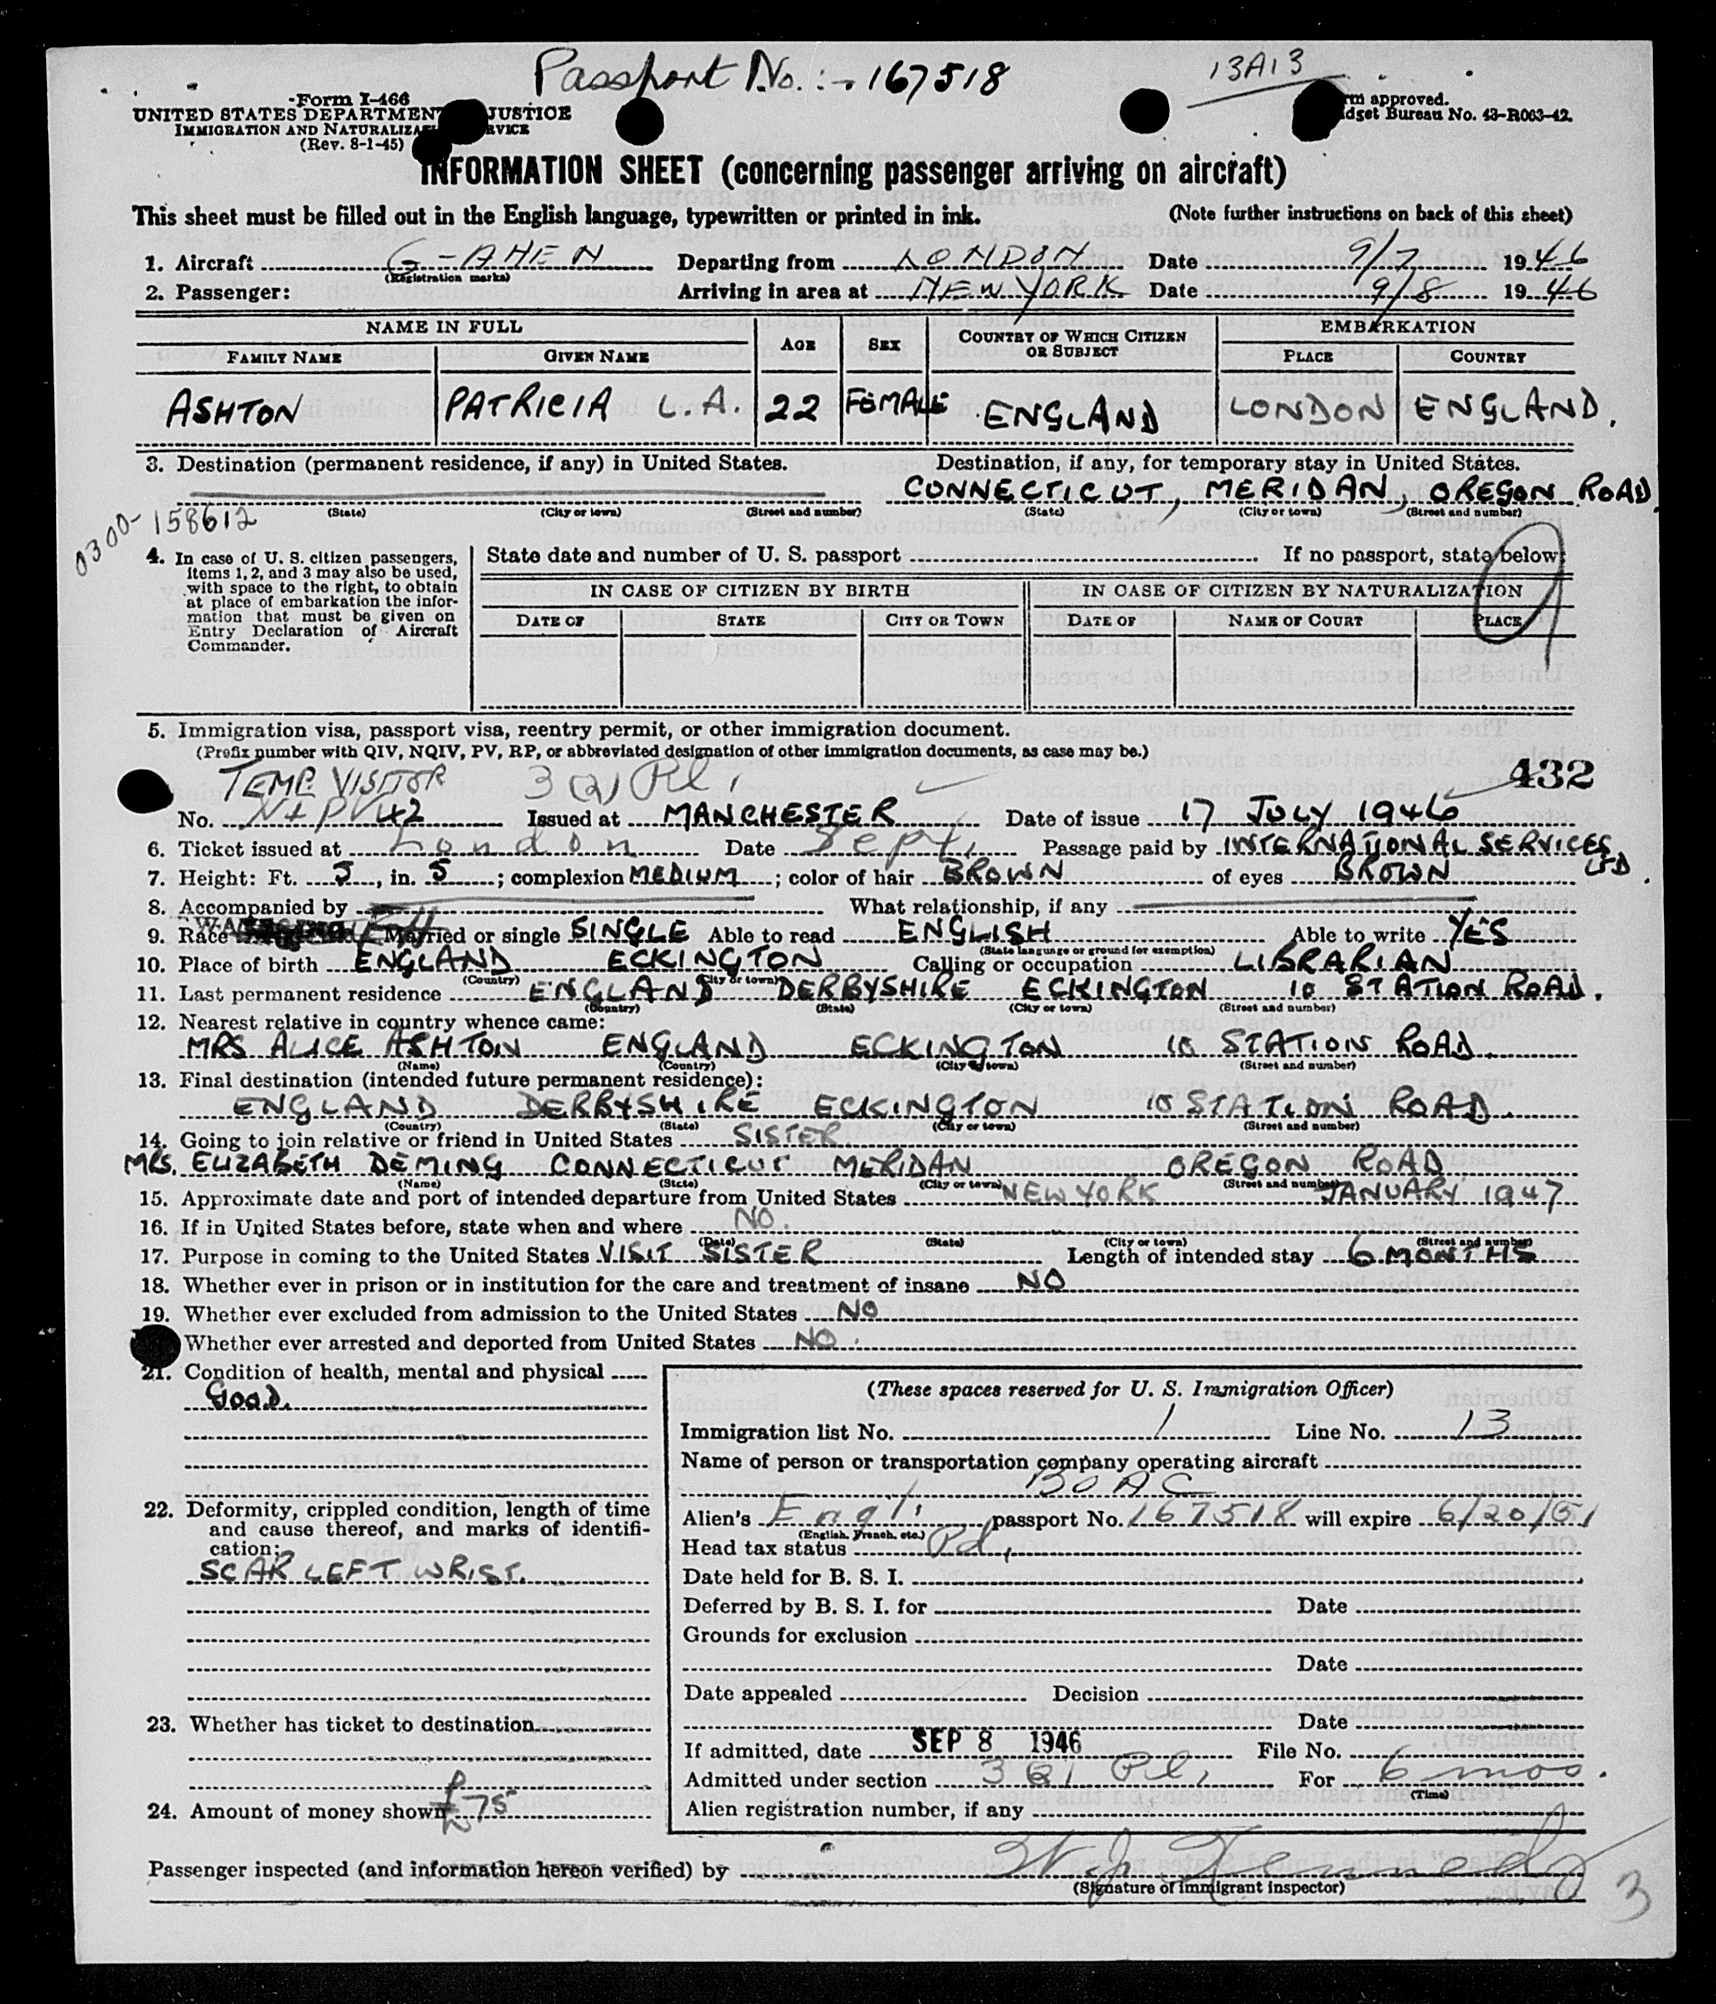 Passport No. :- 167518
13A13
Form I-466
UNITED STATES DEPARTMENT JUSTICE
IMMIGRATION AND NATURALIZA RVICE
(Rev. 8-1-45)
rm approved.
dget Bureau No. 43-R063-42.
INFORMATION SHEET (concerning passenger arriving on aircraft)
This sheet must be filled out in the English language, typewritten or printed in ink. (Note further instructions on back of this sheet)
1. Aircraft G-AHEN Departing from LONDON Date 9/7 1946
(Registration marks)
2. Passenger: Arriving in area at NEW YORK Date 9/8 1946
NAME IN FULL AGE SEX COUNTRY OF WHICH CITIZEN OR SUBJECT EMBARKATION
FAMILY NAME GIVEN NAME PLACE COUNTRY
ASHTON PATRICIA L.A. 22 FEMALE ENGLAND LONDON ENGLAND.
3. Destination (permanent residence, if any) in United States. Destination, if any, for temporary stay in United States.
CONNECTICUT, MERIDAN, OREGON ROAD
(State) (City or town) (Street and number) (State) (City or town) (Street and number)
0300-158612
4. In case of U. S. citizen passengers, items 1, 2, and 3 may also be used, with space to the right, to obtain at place of embarkation the information that must be given on Entry Declaration of Aircraft Commander.
State date and number of U. S. passport If no passport, state below:
IN CASE OF CITIZEN BY BIRTH IN CASE OF CITIZEN BY NATURALIZATION
DATE OF STATE CITY OR TOWN DATE OF NAME OF COURT PLACE
5. Immigration visa, passport visa, reentry permit, or other immigration document.
(Prefix number with QIV, NQIV, PV, RP, or abbreviated designation of other immigration documents, as case may be.)
TEMP. VISITOR 3(2) Pl. 432
No. 42 Issued at MANCHESTER Date of issue 17 JULY 1946
6. Ticket issued at London Date Sept. Passage paid by INTERNATIONAL SERVICES LTD.
7. Height: Ft. 5, in. 5; complexion MEDIUM; color of hair BROWN of eyes BROWN
8. Accompanied by What relationship, if any
9. Race Married or single SINGLE Able to read ENGLISH Able to write YES
(State language or ground for exemption)
10. Place of birth ENGLAND ECKINGTON Calling or occupation LIBRARIAN
(Country) (City or town)
11. Last permanent residence ENGLAND DERBYSHIRE ECKINGTON 10 STATION ROAD.
(Country) (State) (City or town) (Street and number)
12. Nearest relative in country whence came:
MRS ALICE ASHTON ENGLAND ECKINGTON 10 STATION ROAD.
(Name) (Country) (City or town) (Street and number)
13. Final destination (intended future permanent residence):
ENGLAND DERBYSHIRE ECKINGTON 10 STATION ROAD.
(Country) (State) (City or town) (Street and number)
14. Going to join relative or friend in United States SISTER
MRS. ELIZABETH DEMING CONNECTICUT MERIDAN OREGON ROAD
(Name) (State) (City or town) (Street and number)
15. Approximate date and port of intended departure from United States NEW YORK JANUARY 1947
16. If in United States before, state when and where NO.
(Date) (State) (City or town) (Street and number)
17. Purpose in coming to the United States VISIT SISTER Length of intended stay 6 MONTHS
18. Whether ever in prison or in institution for the care and treatment of insane NO
19. Whether ever excluded from admission to the United States NO
Whether ever arrested and deported from United States NO.
21. Condition of health, mental and physical
GOOD.
22. Deformity, crippled condition, length of time and cause thereof, and marks of identification:
SCAR LEFT WRIST.
23. Whether has ticket to destination
24. Amount of money shown £75
(These spaces reserved for U. S. Immigration Officer)
Immigration list No. 1 Line No. 13
Name of person or transportation company operating aircraft
BOAC
Alien's Engl. passport No. 167518 will expire 6/20/51
(English, French, etc.)
Head tax status Pd.
Date held for B. S. I.
Deferred by B. S. I. for Date
Grounds for exclusion
Date
Date appealed Decision
Date
If admitted, date SEP 8 1946 File No.
Admitted under section 3(2) Pl. For 6 mos.
(Time)
Alien registration number, if any
Passenger inspected (and information hereon verified) by W. J. Kennedy
(Signature of immigrant inspector)
3